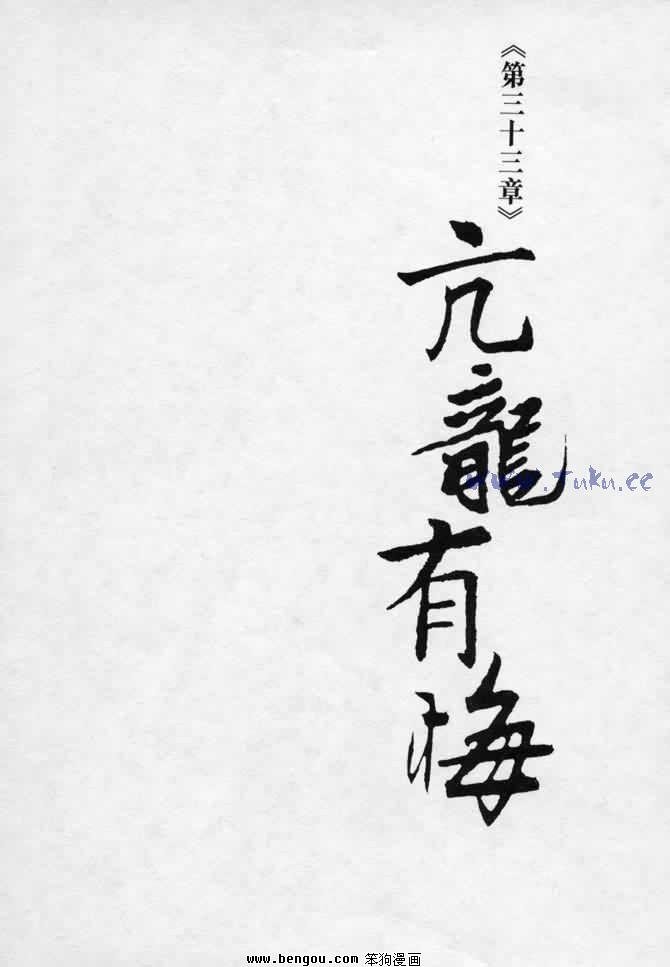 《第三十三章》
亢龍有悔
www.Tuku.cc
www.bengou.com 笨狗漫画